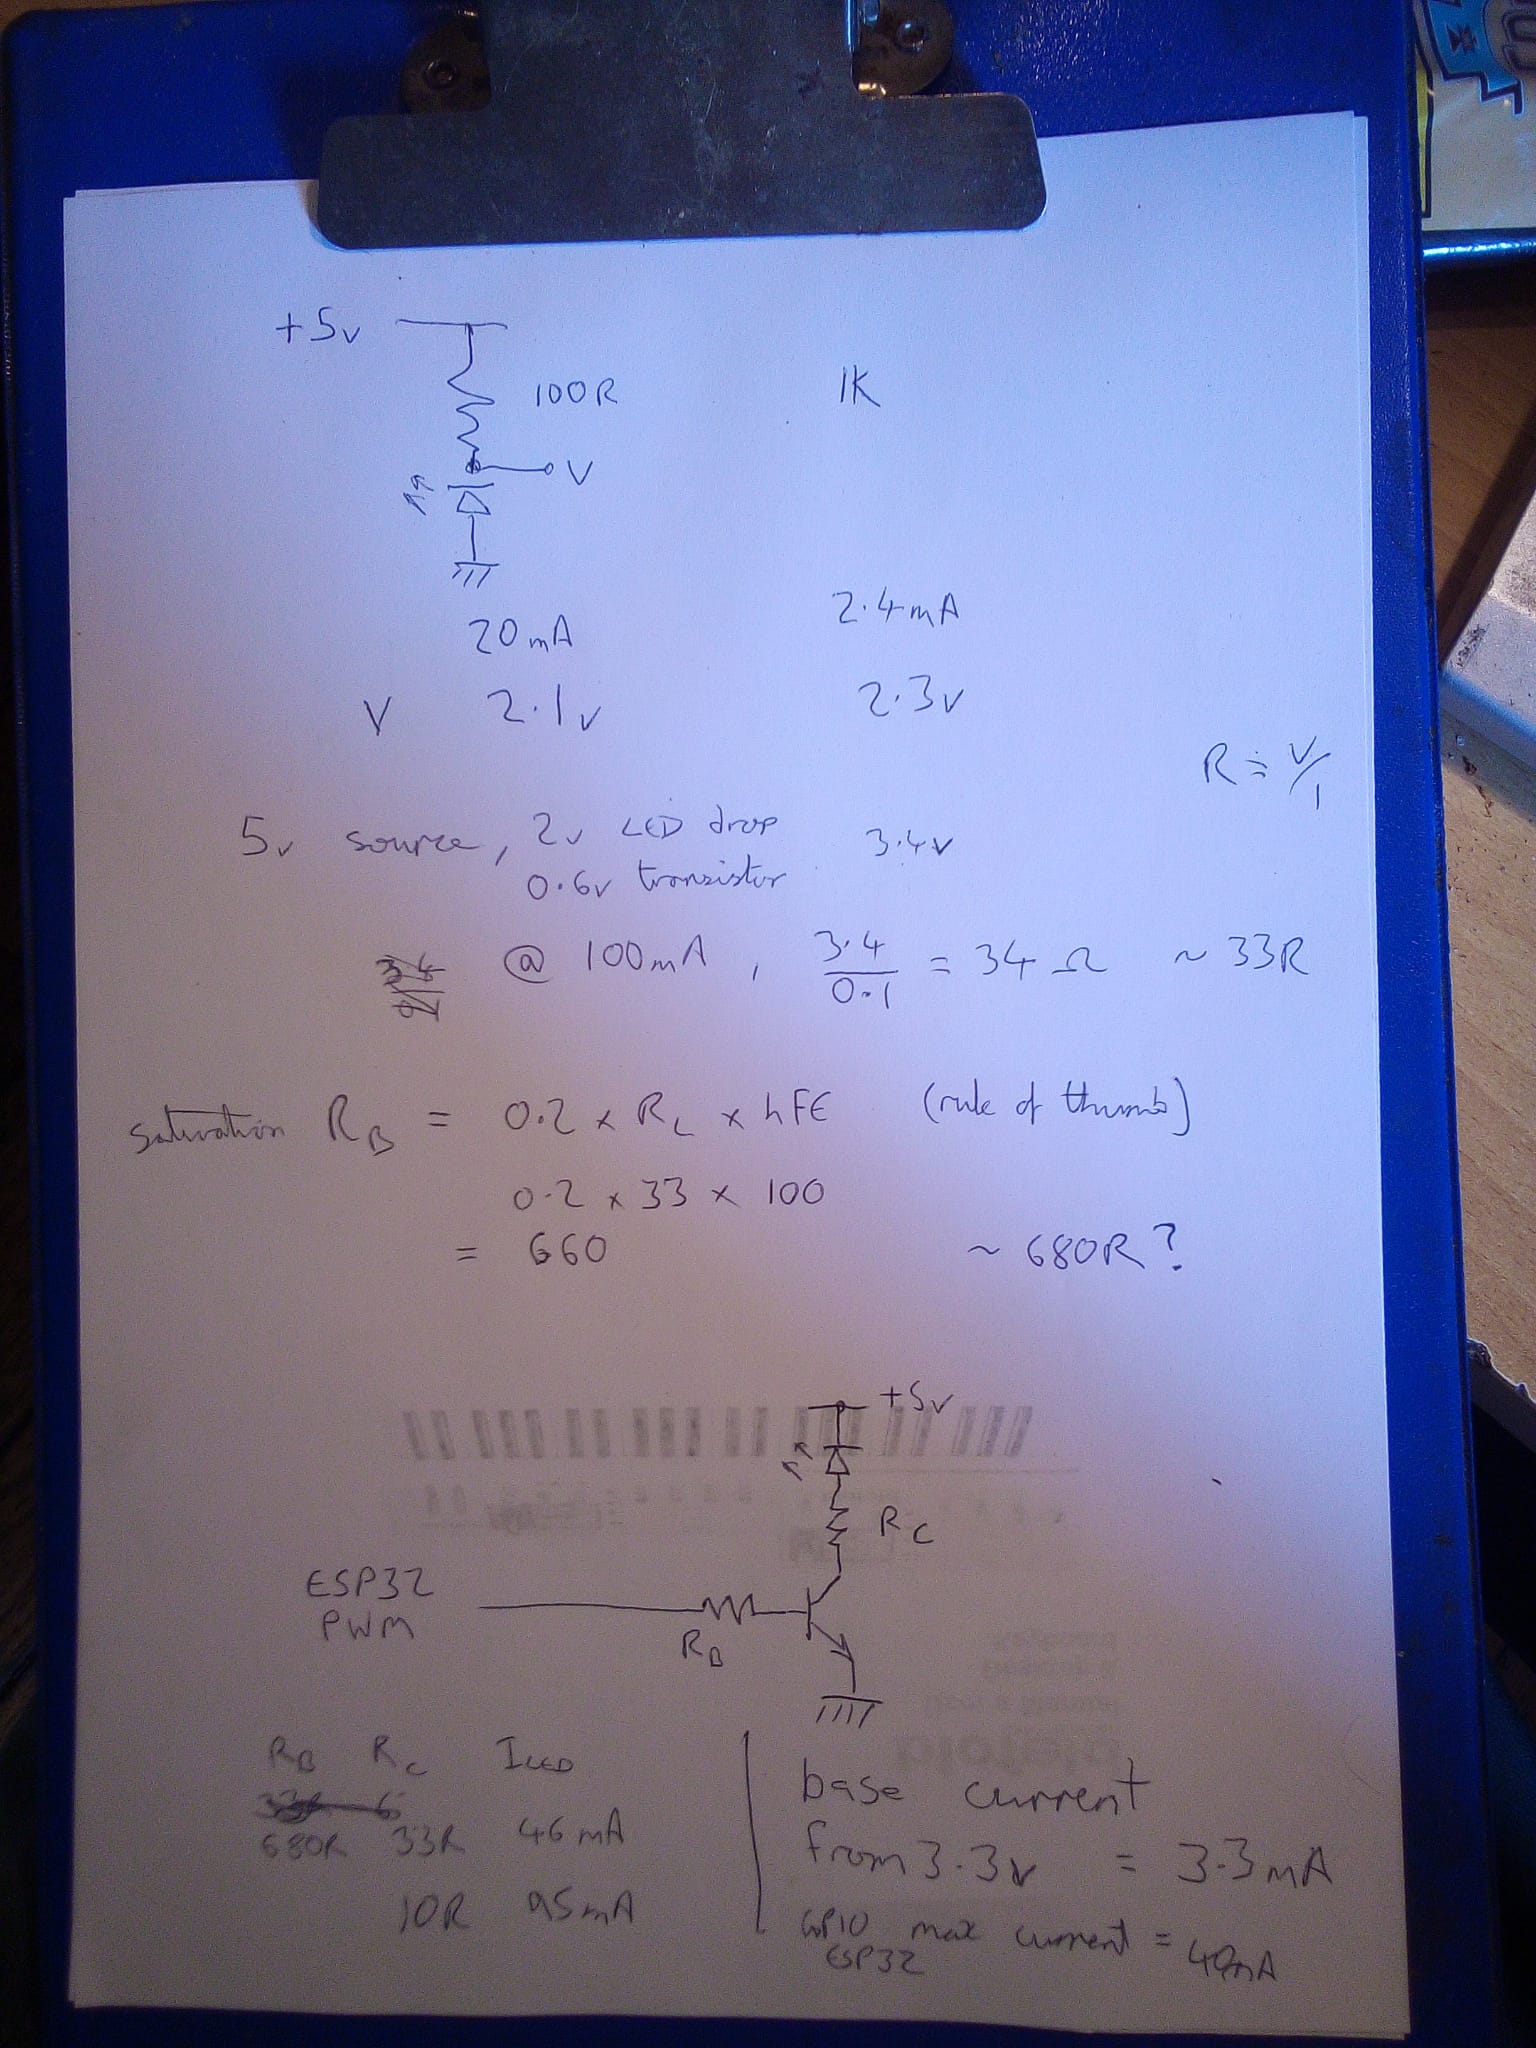 +5v
100R
1K
V
20mA
2.4mA
V 2.1v
2.3v
R = V/I
5v source, 2v LED drop 3.4v
0.6v transistor
@ 100mA, 3.4/0.1 = 34Ω ~ 33R
saturation RB = 0.2 x RL x hFE (rule of thumb)
0.2 x 33 x 100
= 660 ~ 680R?
+5v
RC
ESP32
PWM
RB
RB RC ILED
680R 33R 46mA
10R 95mA
base current
from 3.3v = 3.3mA
GPIO max current = 40mA
ESP32